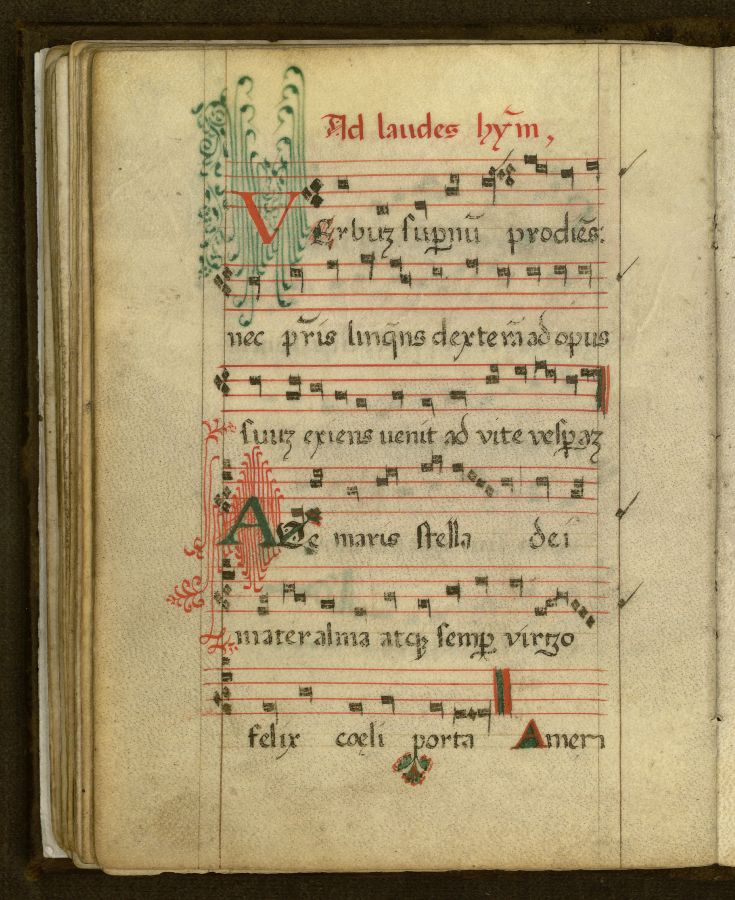 Ad laudes hym̃,
VErbuꝫ ſuꝑnũ prodiẽs:
nec pr̃is linq̃ns dexterã ad opus
ſuuꝫ exiens uenit ad vite veſꝑaꝫ
AVe maris ſtella dei
mater alma atqꝫ ſemꝑ virgo
felix coeli porta Amen